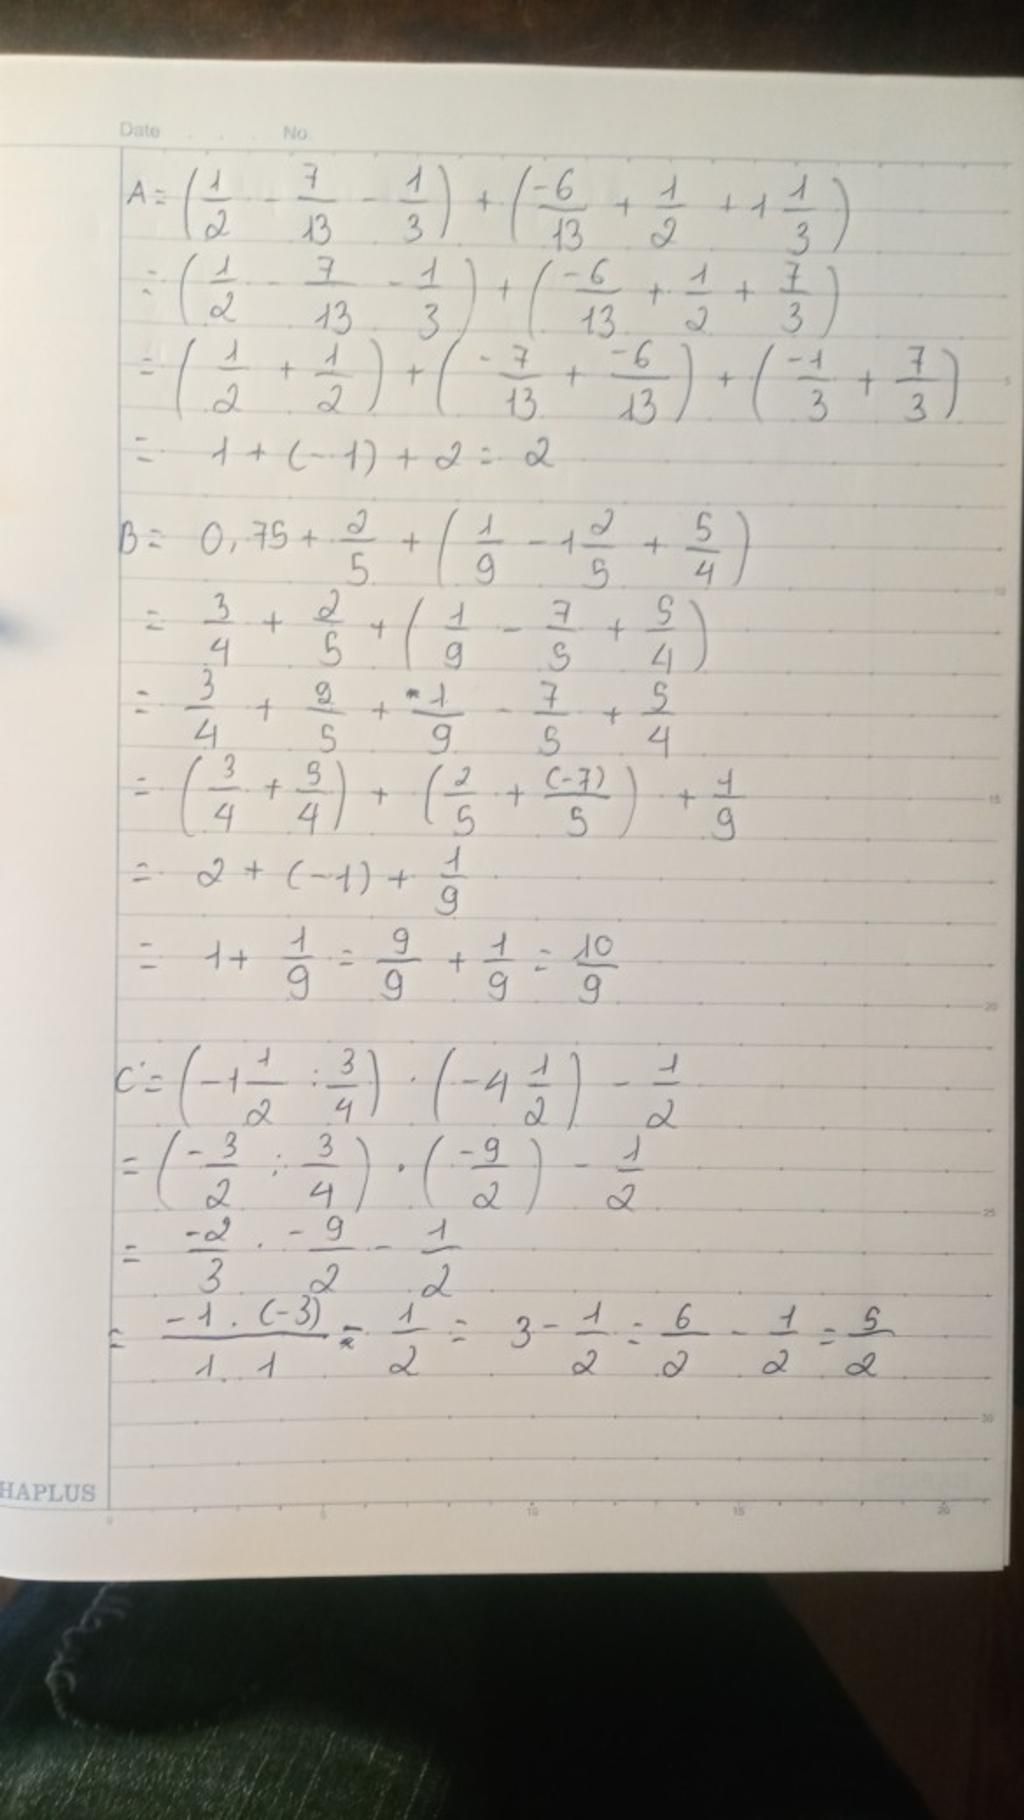 Date . . . No.
A = (1/2 - 7/13 - 1/3) + (-6/13 + 1/2 + 1 1/3)
= (1/2 - 7/13 - 1/3) + (-6/13 + 1/2 + 7/3)
= (1/2 + 1/2) + (-7/13 + -6/13) + (-1/3 + 7/3)
= 1 + (-1) + 2 = 2
B = 0,75 + 2/5 + (1/9 - 1 2/5 + 5/4)
= 3/4 + 2/5 + (1/9 - 7/5 + 5/4)
= 3/4 + 2/5 + 1/9 - 7/5 + 5/4
= (3/4 + 5/4) + (2/5 + (-7)/5) + 1/9
= 2 + (-1) + 1/9
= 1 + 1/9 = 9/9 + 1/9 = 10/9
C = (-1 1/2 : 3/4) . (-4 1/2) - 1/2
= (-3/2 : 3/4) . (-9/2) - 1/2
= -2/3 . -9/2 - 1/2
= -1 . (-3)/1 . 1 - 1/2 = 3 - 1/2 = 6/2 - 1/2 = 5/2
HAPLUS